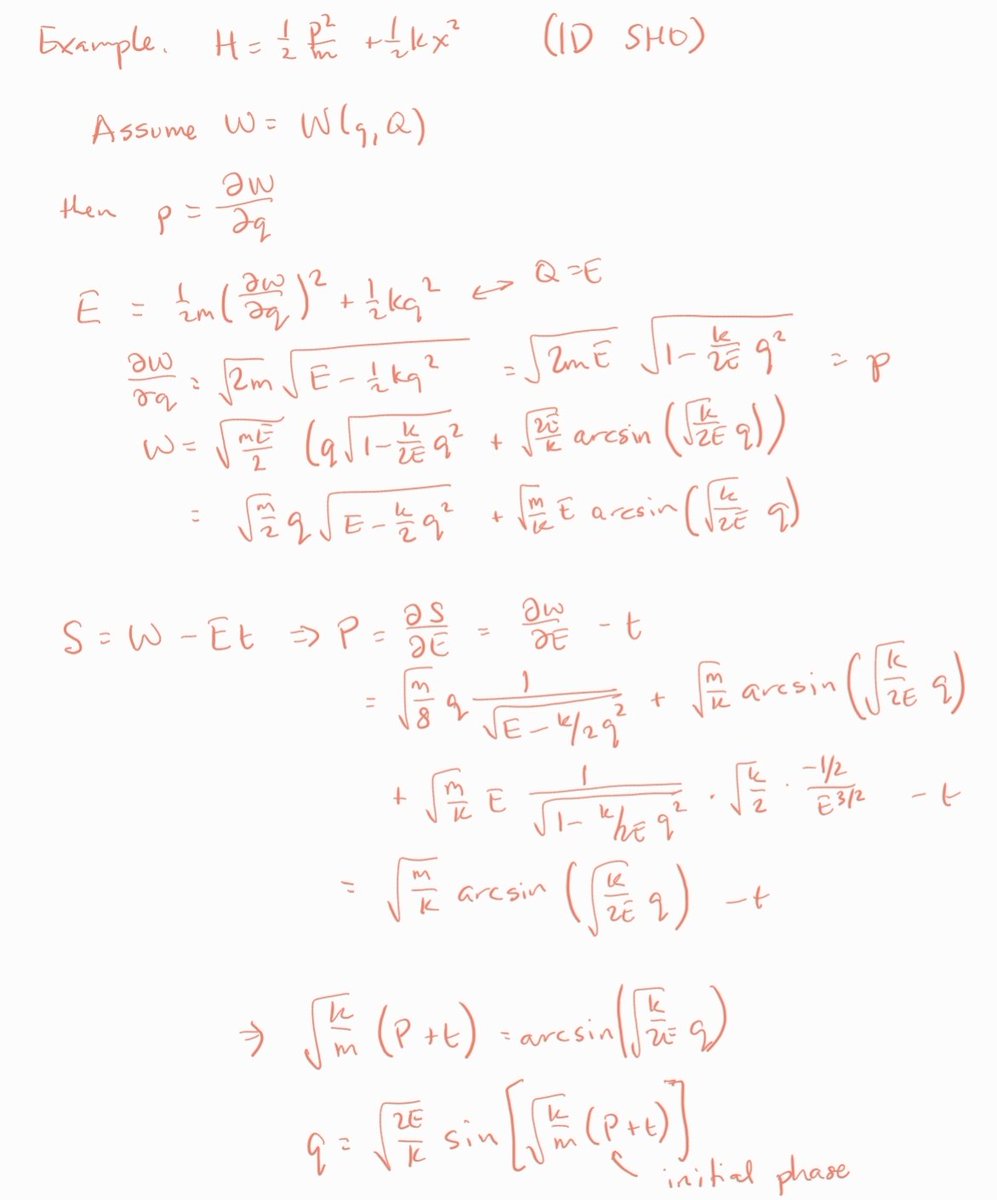 Example. H = ½ p²/m + ½ kx² (1D SHO)
Assume W = W(q, Q)
then p = ∂W/∂q
E = 1/2m (∂W/∂q)² + ½ kq² ↔ Q = E
∂W/∂q = √(2m) √(E - ½ kq²) = √(2mE) √(1 - k/2E q²) = p
W = √(mE/2) (q √(1 - k/2E q²) + √(2E/k) arcsin (√(k/2E) q))
= √(m/2) q √(E - k/2 q²) + √(m/k) E arcsin (√(k/2E) q)
S = W - Et ⇒ P = ∂S/∂E = ∂W/∂E - t
= √(m/8) q 1/√(E - k/2 q²) + √(m/k) arcsin (√(k/2E) q)
+ √(m/k) E 1/√(1 - k/2E q²) · √(k/2) · -1/2 / E^3/2 - t
= √(m/k) arcsin (√(k/2E) q) - t
⇒ √(k/m) (P + t) = arcsin (√(k/2E) q)
q = √(2E/k) sin [√(k/m) (P + t)]
initial phase